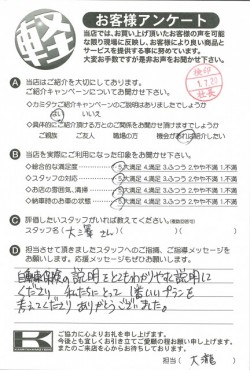 軽
お客様アンケート
当店では、お買い上げ頂いたお客様の声を可能
な限り現場に反映し、お客様により良い商品と
サービスを提供する事に努めています。
大変お手数ですが是非お声をお聞かせ下さい。
A 当店はご紹介を大切にしてあります。
ご紹介キャンペーンについてお聞かせ下さい。
◇カミタケご紹介キャンペーンのご説明はありましたでしょうか
はい いいえ
◇具体的にご紹介頂ける方とのご関係をお聞かせ頂けますでしょうか
ご親族 ご友人 職場の方 機会があれば紹介したい
B 当店を実際にご利用になった印象をお聞かせ下さい。
◇総合的な満足度 5.大満足 4.満足 3.ふつう 2.やや不満 1.不満
◇スタッフの対応 5.大満足 4.満足 3.ふつう 2.やや不満 1.不満
◇お店の雰囲気、清掃 5.大満足 4.満足 3.ふつう 2.やや不満 1.不満
◇納車時のお車の状態 5.大満足 4.満足 3.ふつう 2.やや不満 1.不満
C 評価したいスタッフがいれば教えてください。(複数回答可)
スタッフ名( さん )
D 担当させて頂きましたスタッフへのご指摘、ご指導メッセージを
お願いします。応援メッセージもぜひお願いします!
自動車保険の説明をとてもわかりやすく説明して
くださり 私たちにとって 1番いいプランを
考えてくださり ありがとうございました。
K
ご協力に心よりお礼を申し上げます。
今後とも宜しくお引き立てご愛顧の程お願い申し上げます。
またのご来店を心からお待ちしております。
担当( 大瀧 )